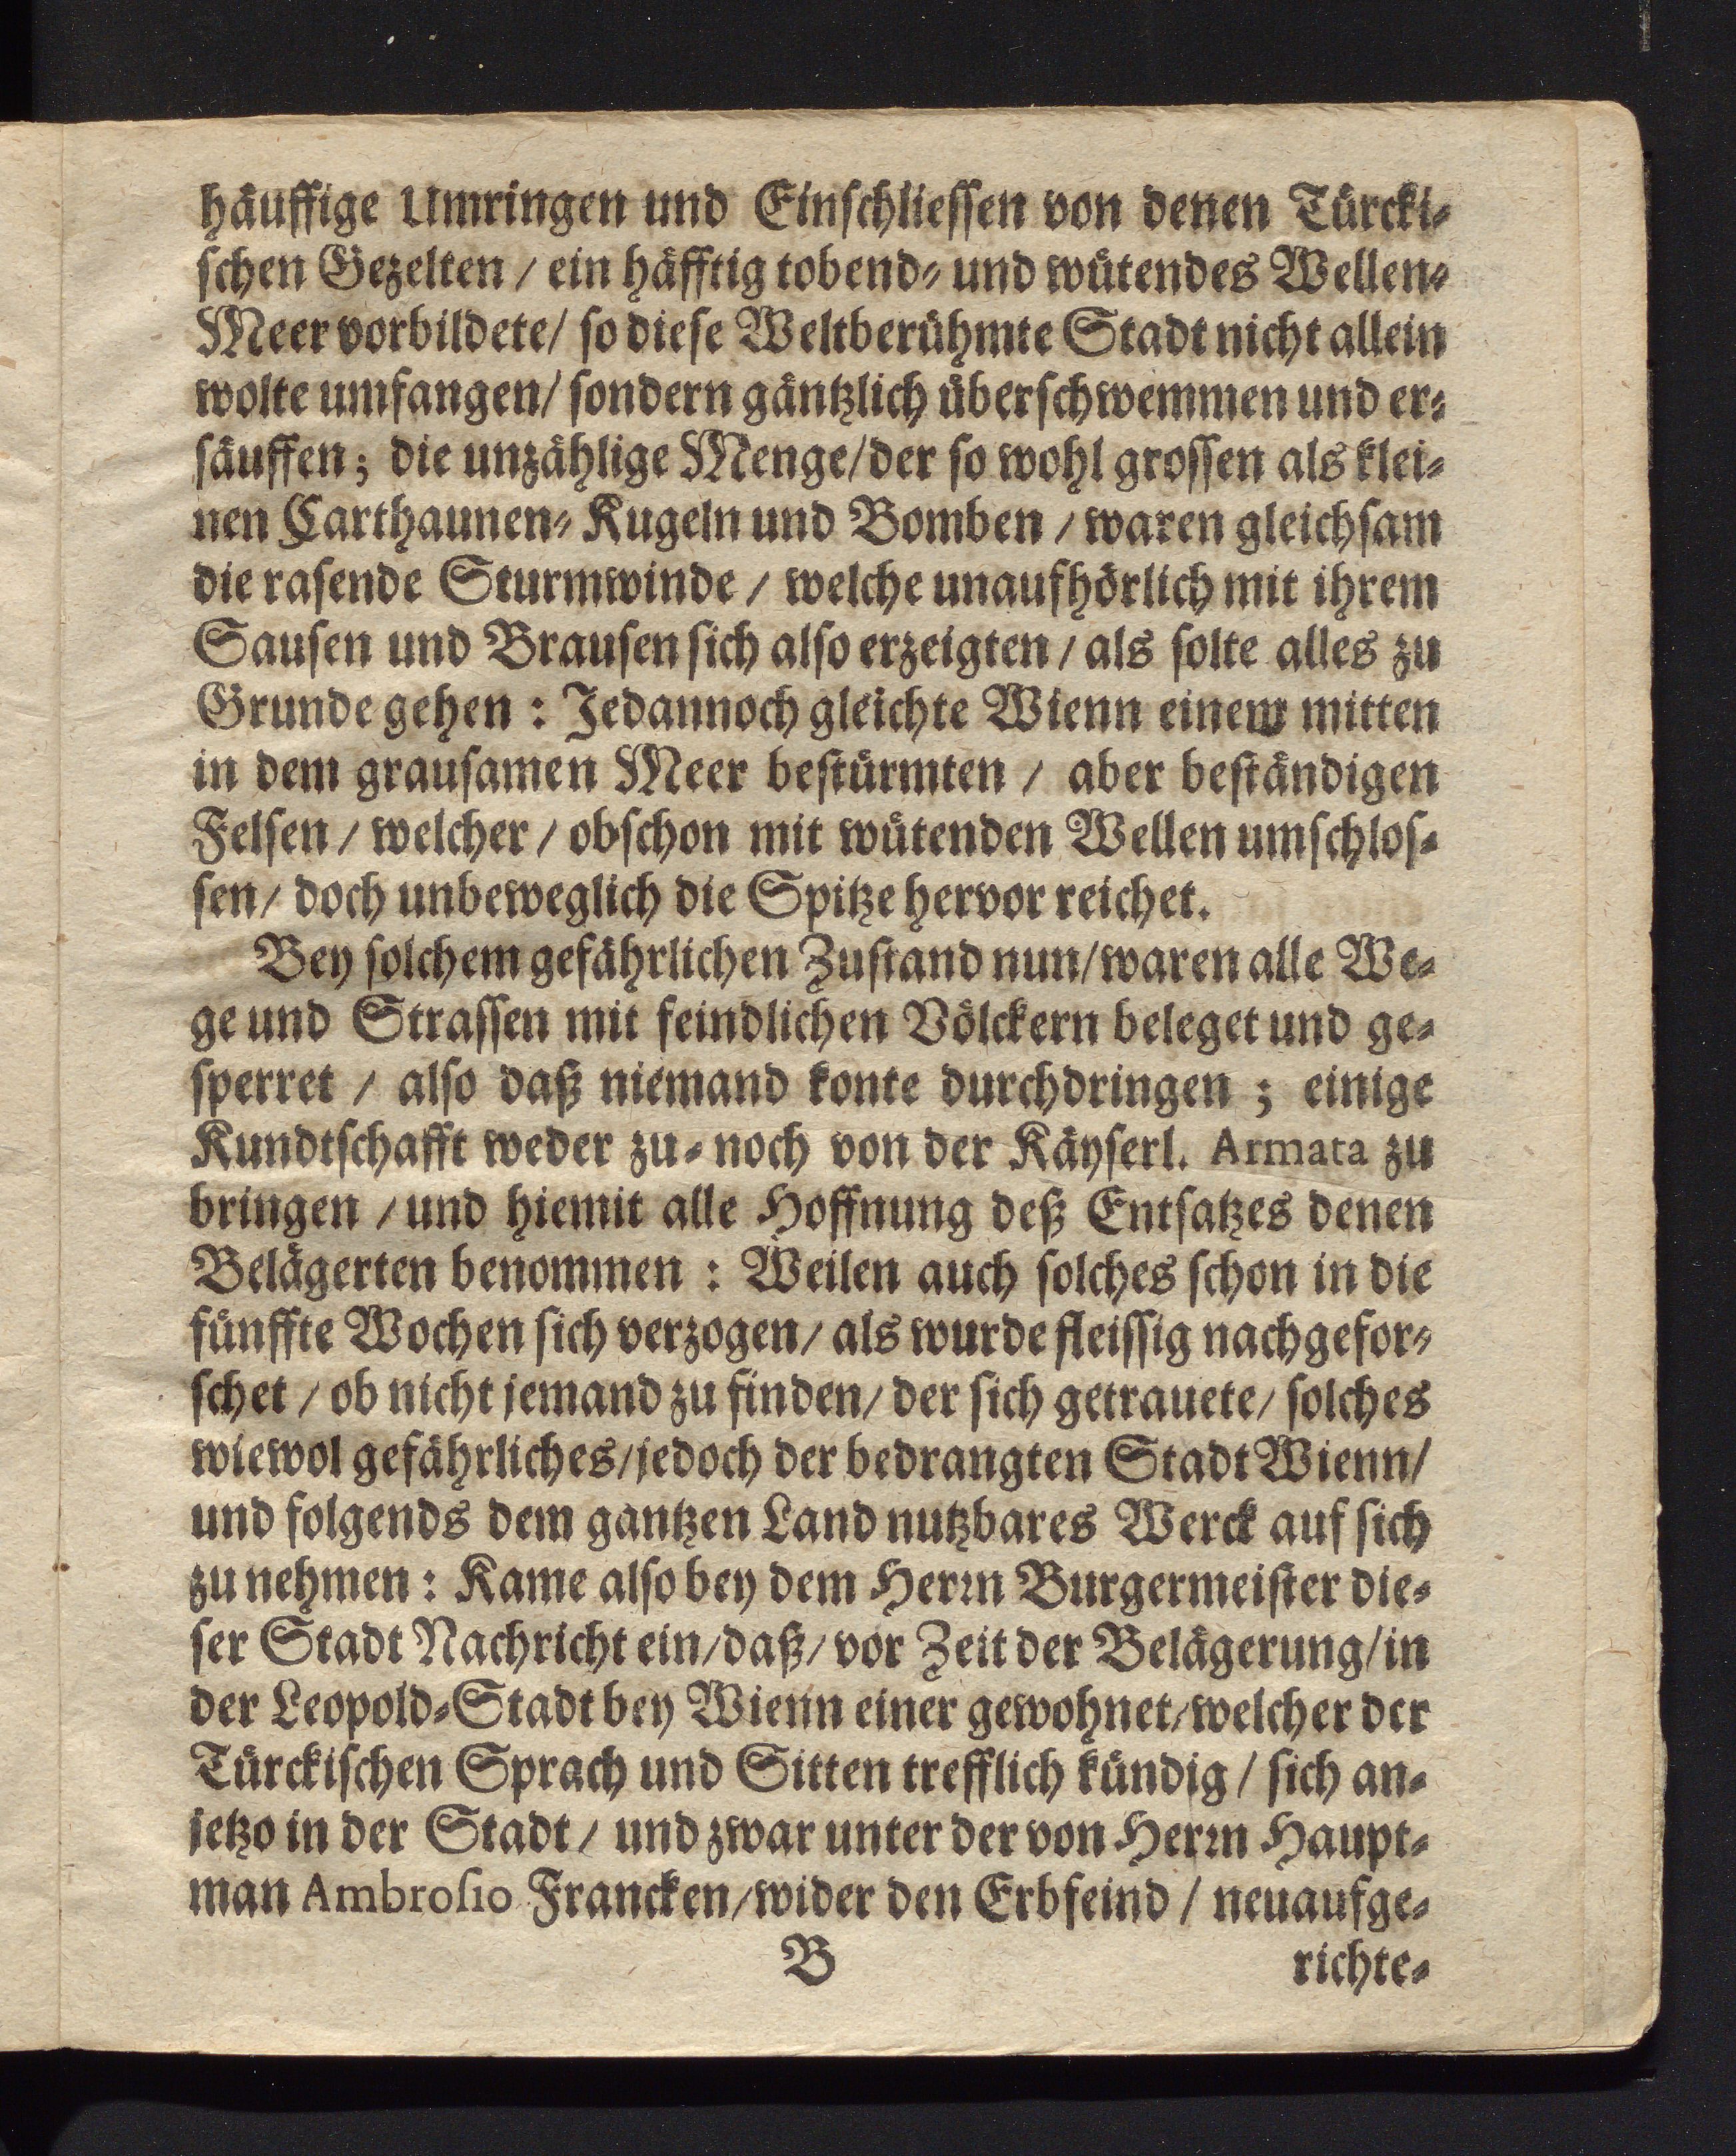 häuffige Umringen und Einschliessen von denen Türcki-
schen Gezelten / ein häfftig tobend- und wütendes Wellen-
Meer vorbildete/ so diese Weltberühmte Stadt nicht allein
wolte umfangen/ sondern gäntzlich überschwemmen und er-
säuffen; die unzählige Menge/der so wohl grossen als klei-
nen Carthaunen- Kugeln und Bomben / waren gleichsam
die rasende Sturmwinde / welche unaufhörlich mit ihrem
Sausen und Brausen sich also erzeigten / als solte alles zu
Grunde gehen : Jedannoch gleichte Wienn einem mitten
in dem grausamen Meer bestürmten / aber beständigen
Felsen / welcher / obschon mit wütenden Wellen umschlos-
sen/ doch unbeweglich die Spitze hervor reichet.
Bey solchem gefährlichen Zustand nun/waren alle We-
ge und Strassen mit feindlichen Völckern beleget und ge-
sperret / also daß niemand konte durchdringen ; einige
Kundtschafft weder zu- noch von der Käyserl. Armata zu
bringen / und hiemit alle Hoffnung deß Entsatzes denen
Belägerten benommen : Weilen auch solches schon in die
fünffte Wochen sich verzogen/ als wurde fleissig nachgefor-
schet / ob nicht jemand zu finden/ der sich getrauete/ solches
wiewol gefährliches/jedoch der bedrangten Stadt Wienn/
und folgends dem gantzen Land nutzbares Werck auf sich
zu nehmen : Kame also bey dem Herrn Burgermeister die-
ser Stadt Nachricht ein/daß/ vor Zeit der Belägerung/in
der Leopold-Stadt bey Wienn einer gewohnet/welcher der
Türckischen Sprach und Sitten trefflich kündig / sich an-
jetzo in der Stadt / und zwar unter der von Herrn Haupt-
man Ambrosio Francken/wider den Erbfeind / neuaufge-
B richte-